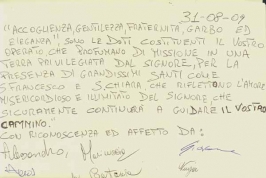 31-08-09
"ACCOGLIENZA, GENTILEZZA, FRATERNITÀ, GARBO ED
ELEGANZA", SONO LE DOTI COSTITUENTI IL VOSTRO
OPERATO CHE PROFUMANO DI MISSIONE IN UNA
TERRA PRIVILEGIATA DAL SIGNORE, PER LA
PRESENZA DI GRANDISSIMI SANTI COME
S. FRANCESCO E S. CHIARA, CHE RIFLETTONO L'AMORE
MISERICORDIOSO E ILLIMITATO DEL SIGNORE, CHE
SICURAMENTE CONTINUERÀ A GUIDARE IL VOSTRO
CAMMINO."
CON RICONOSCENZA ED AFFETTO DA:
Alessandro,